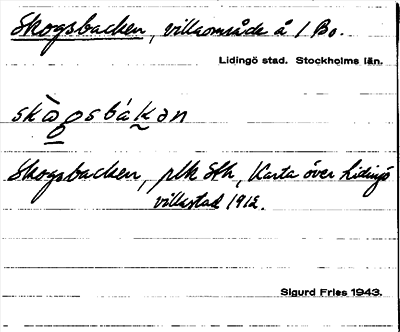 Skogsbacken, villaområde å 1 Bo.
Lidingö stad. Stockholms län.
skògsbákən
Skogsbacken, plk Sth, Karta över Lidingö
villastad 1912.
Sigurd Fries 1943.